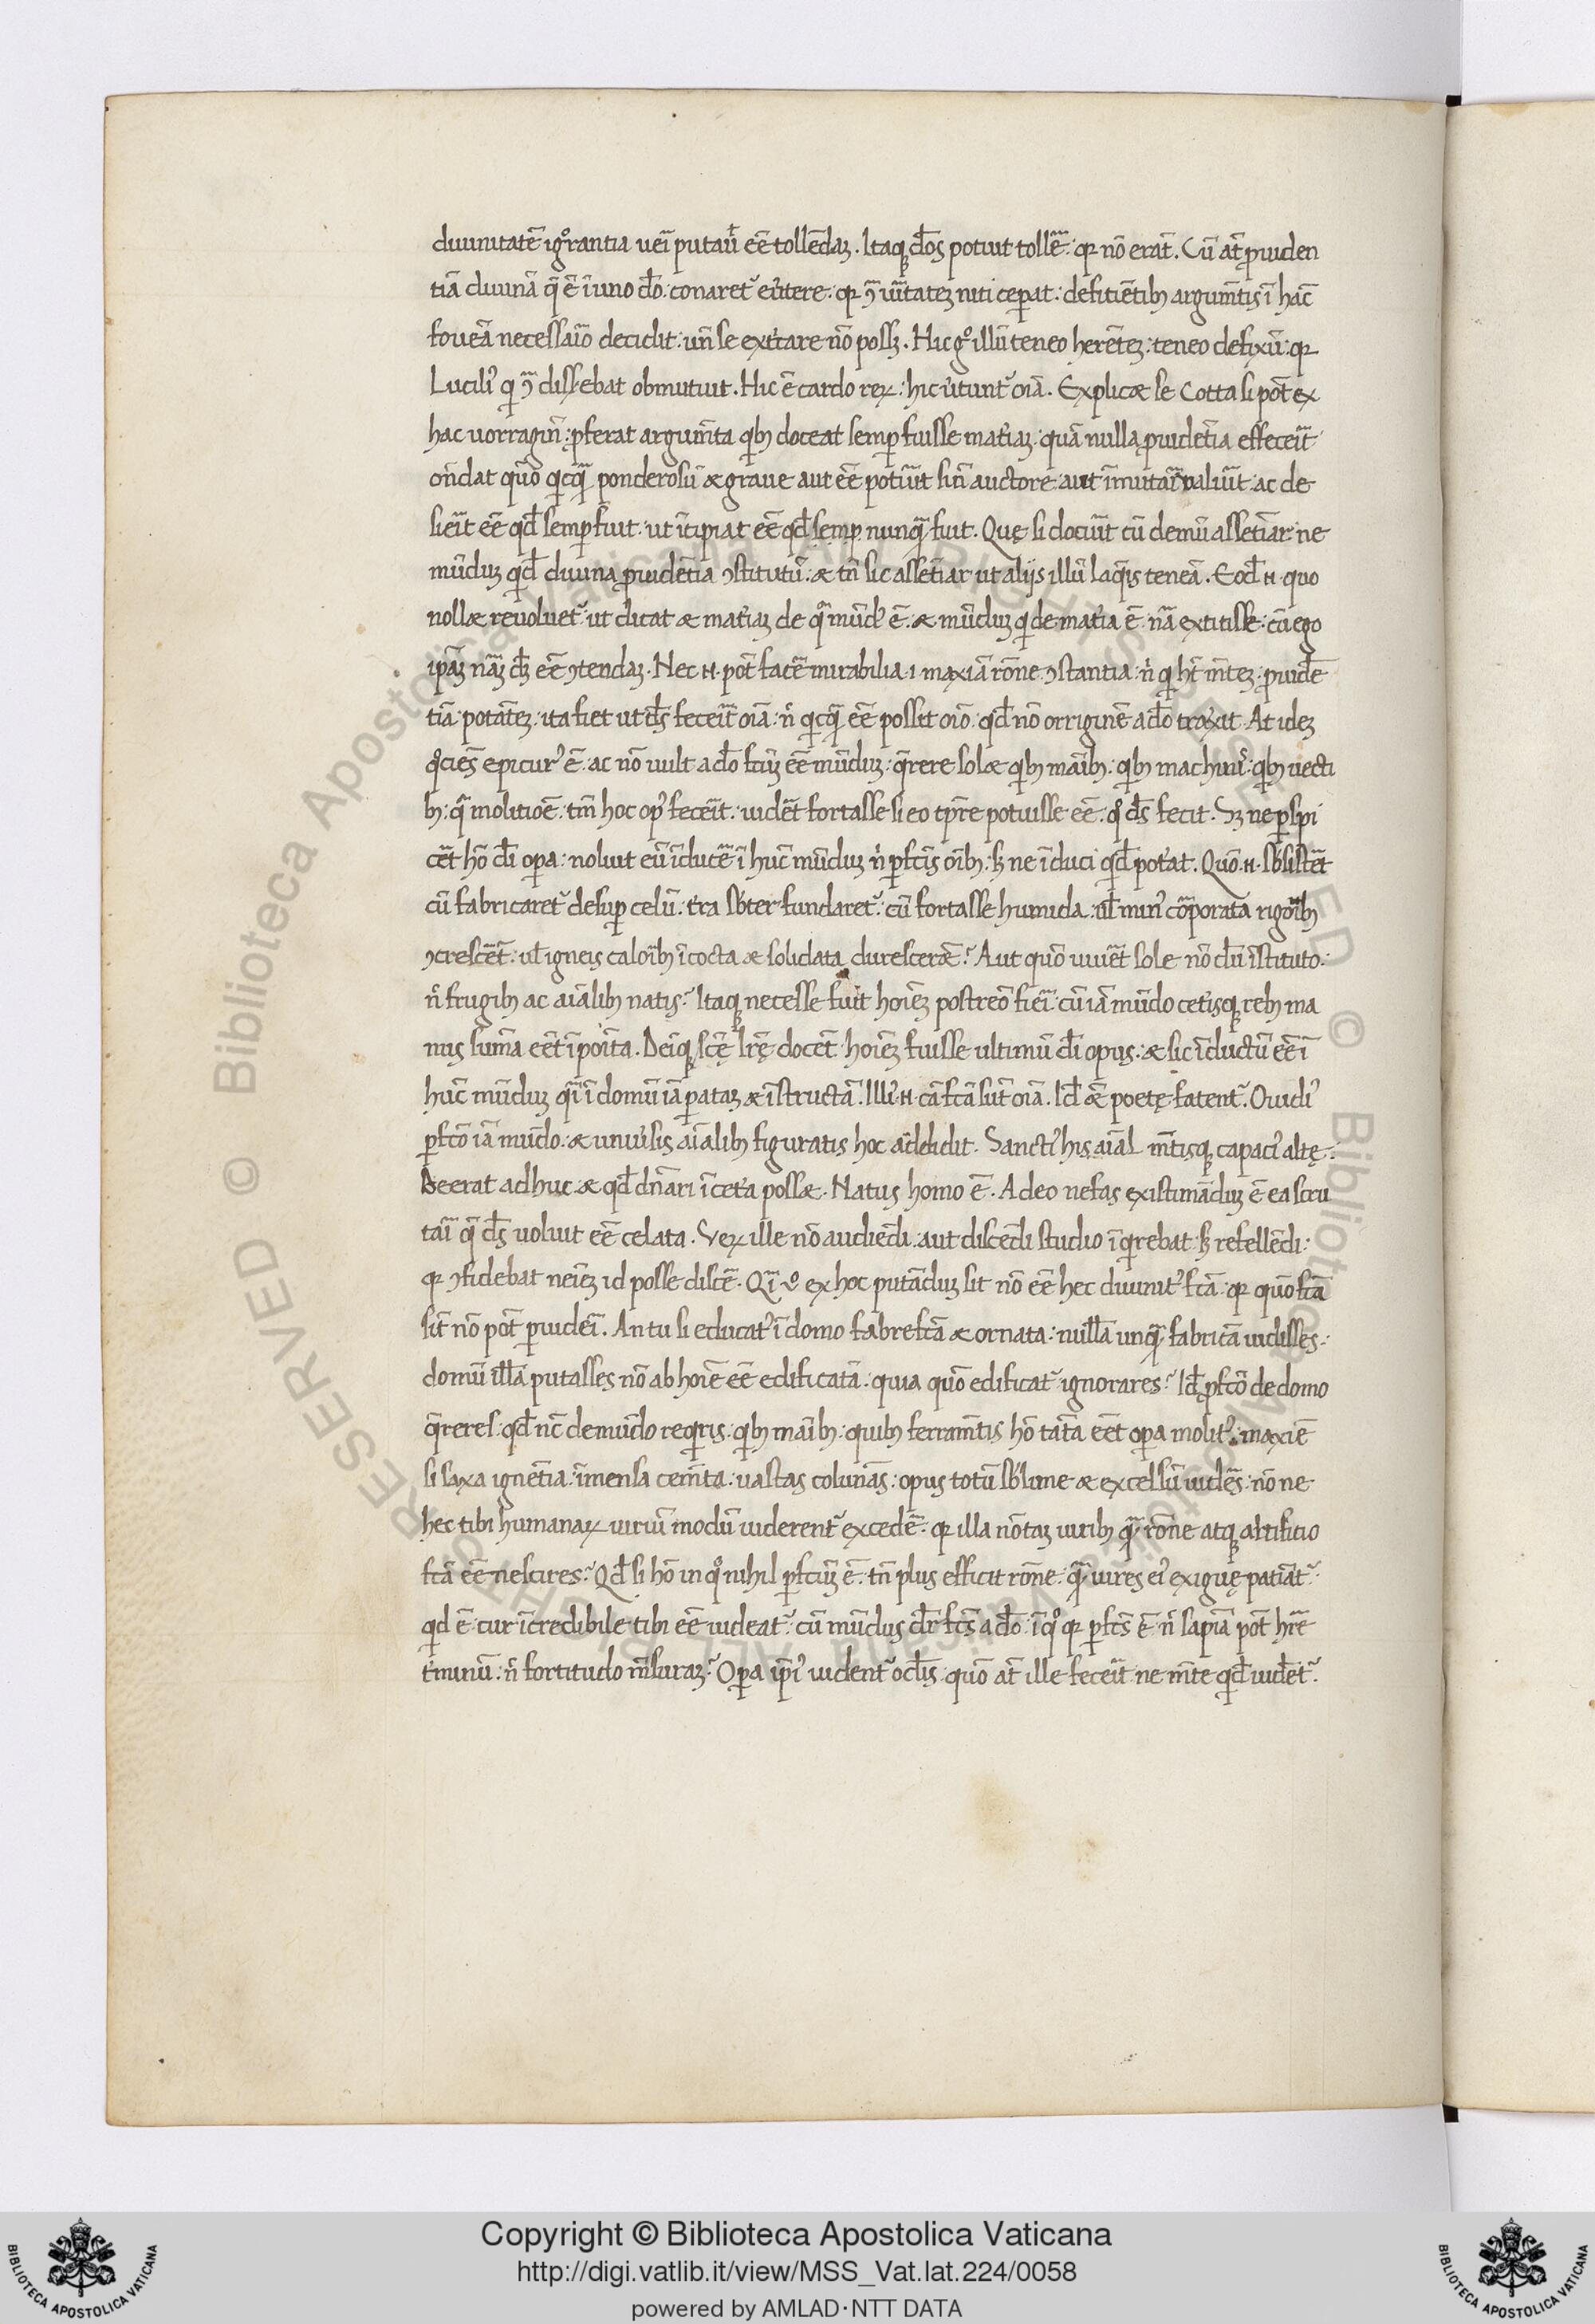 diuinitatē ignͦrantia ueī putau̅ eē tollēdaꝫ. Itaqꝫ dōs potuit tollē: qꝛ nō erāt. Cū at̄ ꝓuiden
tiā diuinā q̄ ē ī uno dō: conaret᷑ eu̓tere: qꝛ ꝯ̄ uītateꝫ niti ceꝑat: defitiētibꝫ argum̄tis ī hāc
foueā necessaīo decidit: un̄ se exc̓tare nō possꝫ. Hic gͦ illū teneo herēteꝫ: teneo defixū: qꝛ
Lucili᷒ qi ꝯ̄ diss̓ebat obmutuit. Hic ē cardo reꝝ: hic u̓tunt᷑ oīa. Explicæ se Cotta si pōt ex
hac uorragin̄: ꝓferat argum̄ta qibꝫ doceat semꝑ fuisse mat̓iaꝫ: quā nulla ꝓuidētia effeceīt
on̄dat quō qicqā ponderosū æ graue aut eē potuīt sin̄ auctore: aut īmutaī ualuīt: ac de
sieīt eē qd̄ semꝑ fuit: ut īcipiat eē qd̄ semꝑ nunqā fuit. Quę si docuīt tū demū assētiar: ne
mūduꝫ qid̄ diuina ꝓuidētia ꝯstitutū: æ tn̄ sic assētiar ut alijs illū laqis teneā. Eod̄ .n. quo
nollæ reuoluet᷑ ut dicat æ mat̓iaꝫ de qa mūd᷒ ē: æ mūduꝫ qi de mat̓ia ē: nā extitisse: cū ego
ipāꝫ nāꝫ dꝫ eē ꝯtendaꝫ. Nec .n. pōt facē mirabilia .i. maxīa rōne ꝯstantia: n̓ qi ht̄ mn̄teꝫ: ꝓuidē
tiā: potāteꝫ: ita fiet ut ds̄ feceīt oīa: n̓ qicqā eē possit oīo: qd̄ nō orriginē a dō traxit. At ideꝫ
qͦciēs epicur᷒ ē: ac nō uult a dō fcūꝫ eē mūduꝫ: qrere solæ qibꝫ māibꝫ: qibꝫ machinis: qibꝫ uecti
bꝫ: qa molitiōē: tm̄ hoc op᷒ feceīt: uidēt fortasse si eo tp̄re potuisse eē: qͦ ds̄ fecit. Sꝫ ne ꝑspi
cēt hō dī oꝑa: noluit eū īducē ī hūc mūduꝫ n̓ ꝑfc̄is oībꝫ: sꝫ ne īduci qid̄ pot̓at. Quō .n. sb̄sistēt
cū fabricaret᷑ desuꝑ celū: t̓ra sb̄ter fundaret᷑: cū fortasse humida: ul̄ nimī cōꝑorata rigoībꝫ
ꝯcrescēt: ul̄ igneis caloībꝫ īcocta æ solidata durescerǣ? Aut quō uiuēt sole nō dū īstituto:
n̓ frugibꝫ ac aīalibꝫ natis? Itaqꝫ necesse fuit hoīeꝫ postreō fieī: cū iā mūdo cet̓isqꝫ rebꝫ ma
nus sum̄a eēt īpoīta. Deiqꝫ scę̄ lr̄ę docēt: hoīeꝫ fuisse ultimū dī opus: æ sic īductū eē ī
hūc mūduꝫ qī ī domū iā ꝑataꝫ æ īstructā. Illi᷒ .n. cā fcā sūt oīa. Id̄ ǣ poetę fatent᷑. Ouidi᷒
ꝑfcō iā mūdo: æ uniu̓sis aīalibꝫ figuratis hoc addidit. Sancti᷒ his aīal mn̄tisqꝫ capaci᷒ altę:
Deerat adhuc æ qd̄ dn̄ari ī cet̓a possæ. Natus homo ē. Adeo nefas existimāduꝫ ē ea scru
taī q̄ ds̄ uoluit eē celata. Veꝝ ille nō audiēdi aut discēdi studio īqirebat: sꝫ refellēdi:
qꝛ ꝯfidebat neīeꝫ id posse discē. Qī uͦ ex hoc putāduꝫ sit nō eē hec diuinit᷒ fcā: qꝛ quō fcā
sīt nō pōt ꝑuideī. An tu si educat᷒ ī domo fabrefcā æ ornata: nullā unqā fabricā uidisses:
domū illā putasses nō ab hoīe eē edificatā: quia quō edificat᷑ ignorares? Id̄ ꝓfcō de domo
qreres: qd̄ nc̄ de mūdo reqiris: qibꝫ māibꝫ: quibꝫ ferramn̄tis hō tāta eēt oꝑa molit᷒: maxīe
si saxa ignētia: īmensa cemn̄ta: uastas colunas: opus totū sb̄lime æ excelsū uidēs: nō ne
hec tibi humanaꝝ uiriū modū uiderent᷑ excedē: qꝛ illa nō taꝫ uiribꝫ qā rōne atqꝫ artifitio
fcā eē nescires? Qd̄ si hō in qͦ nihil ꝑfcūꝫ ē: tn̄ plus efficit rōne: qā uires ei᷒ exiguę patiāt᷑:
qid ē cur īcredibile tibi eē uideat᷑: cū mūdus dr̄ fcs̄ a dō: ī qͦ qꝛ ꝑfcs̄ ē n̓ sapīa pōt hr̄e
t̓minū: n̓ fortitudo mn̄suraꝫ? Oꝑa ipī᷒ uident᷑ ocl̄is: quō at̄ ille feceīt ne mn̄te qid̄ uidet᷑.
Copyright © Biblioteca Apostolica Vaticana
http://digi.vatlib.it/view/MSS_Vat.lat.224/0058
powered by AMLAD·NTT DATA